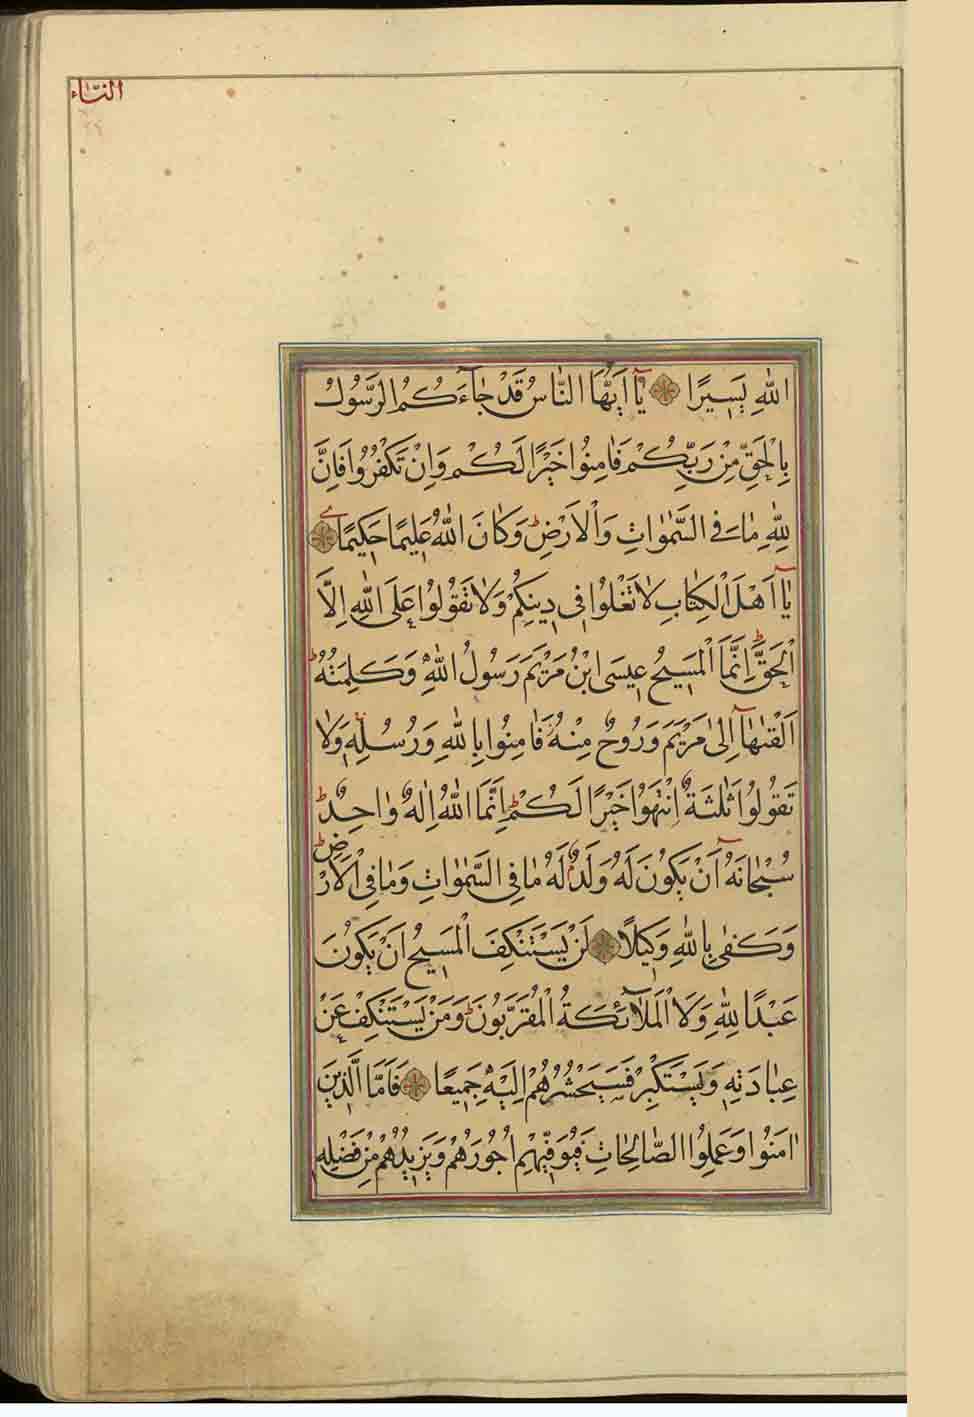 النساء
اللهِ يَسِيرًا يَٓا اَيُّهَا النَّاسُ قَدْ جَٓاءَكُمُ الرَّسُولُ
بِالْحَقِّ مِنْ رَبِّكُمْ فَاٰمِنُوا خَيْرًا لَكُمْ وَاِنْ تَكْفُرُوا فَاِنَّ
لِلّٰهِ مَا فِي السَّمٰوَاتِ وَالْاَرْضِ ط وَكَانَ اللّٰهُ عَلِيمًا حَكِيمًا
يَٓا اَهْلَ الْكِتَابِ لَا تَغْلُوا فِي دِينِكُمْ وَلَا تَقُولُوا عَلَى اللّٰهِ اِلَّا
الْحَقَّ ط اِنَّمَا الْمَسِيحُ عِيسَى ابْنُ مَرْيَمَ رَسُولُ اللّٰهِ وَكَلِمَتُهُ ط
اَلْقٰيهَٓا اِلٰى مَرْيَمَ وَرُوحٌ مِنْهُ فَاٰمِنُوا بِاللّٰهِ وَرُسُلِهِ وَلَا
تَقُولُوا ثَلٰثَةٌ اِنْتَهُوا خَيْرًا لَكُمْ ط اِنَّمَا اللّٰهُ اِلٰهٌ وَاحِدٌ ط
سُبْحَانَهُٓ اَنْ يَكُونَ لَهُ وَلَدٌ م لَهُ مَا فِي السَّمٰوَاتِ وَمَا فِي الْاَرْضِ ط
وَكَفٰى بِاللّٰهِ وَكِيلًا لَنْ يَسْتَنْكِفَ الْمَسِيحُ اَنْ يَكُونَ
عَبْدًا لِلّٰهِ وَلَا الْمَلٰٓائِكَةُ الْمُقَرَّبُونَ ط وَمَنْ يَسْتَنْكِفْ عَنْ
عِبَادَتِهِ وَيَسْتَكْبِرْ فَسَيَحْشُرُهُمْ اِلَيْهِ جَمِيعًا فَاَمَّا الَّذِينَ
اٰمَنُوا وَعَمِلُوا الصَّالِحَاتِ فَيُوَفِّيهِمْ اُجُورَهُمْ وَيَزِيدُهُمْ مِنْ فَضْلِهِ